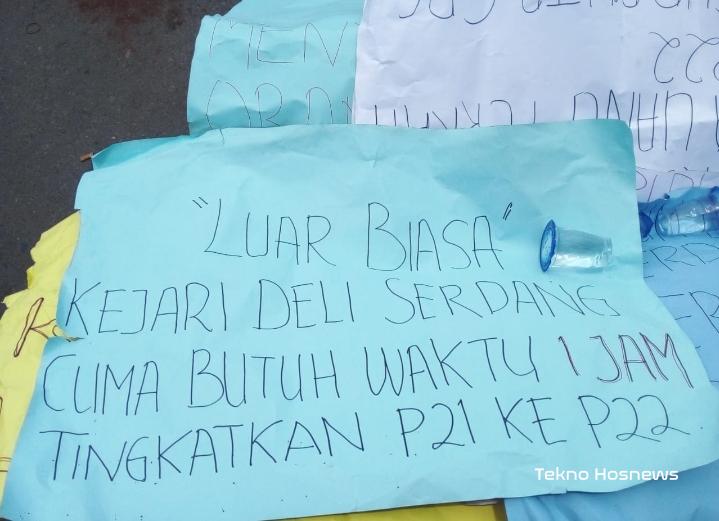 MEN
"LUAR BIASA"
KEJARI DELI SERDANG
CUMA BUTUH WAKTU 1 JAM
TINGKATKAN P21 KE P22
Tekno Hosnews